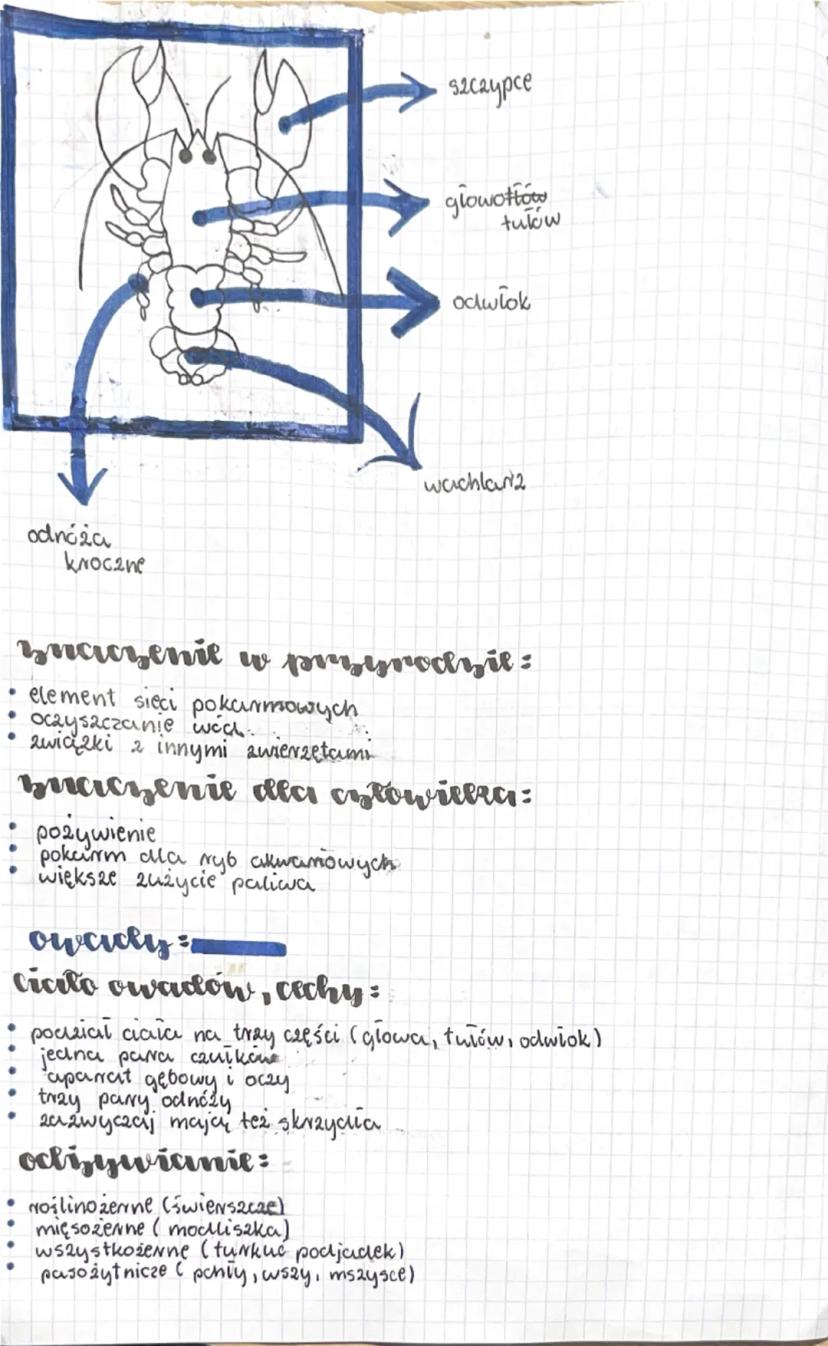 szczypce
głowotłów
tułów
odwłok
wachlarz
odnóża
kroczne
znaczenie w przyrodzie:
• element sieci pokarmowych
• oczyszczanie wód
• związki z innymi zwierzętami
znaczenie dla człowieka:
• pożywienie
• pokarm dla ryb akwariowych
• większe zużycie paliwa
owady:
ciało owadów, cechy:
• podział ciała na trzy części (głowa, tułów, odwłok)
• jedna para czułków
• aparat gębowy i oczy
• trzy pary odnóży
• zazwyczaj mają też skrzydła
odżywianie:
• roślinożerne (świerszcze)
• mięsożerne (modliszka)
• wszystkożerne (turkuć podjadek)
• pasożytnicze (pchły, wszy, mszyce)